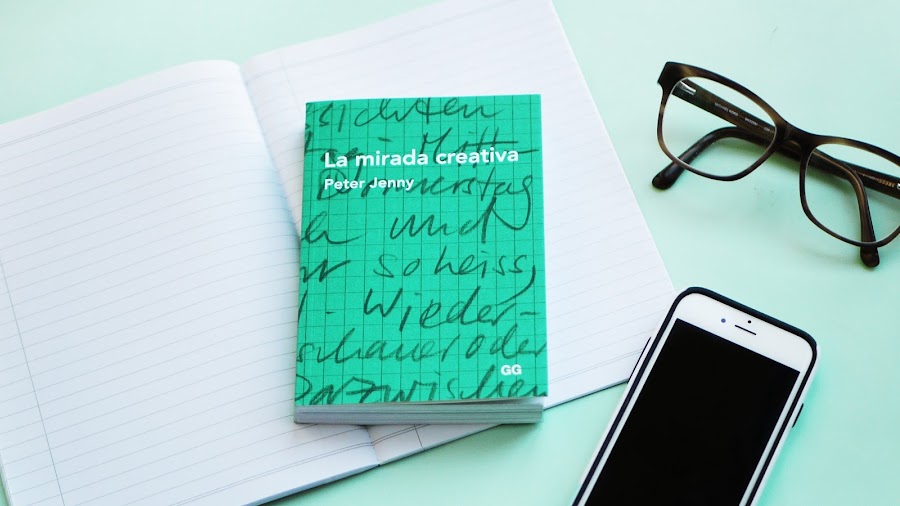 sichten
La mirada creativa
Peter Jenny
Donnerstag
und
so heiss,
Wieder-
schauer oder
Dazwischen
GG